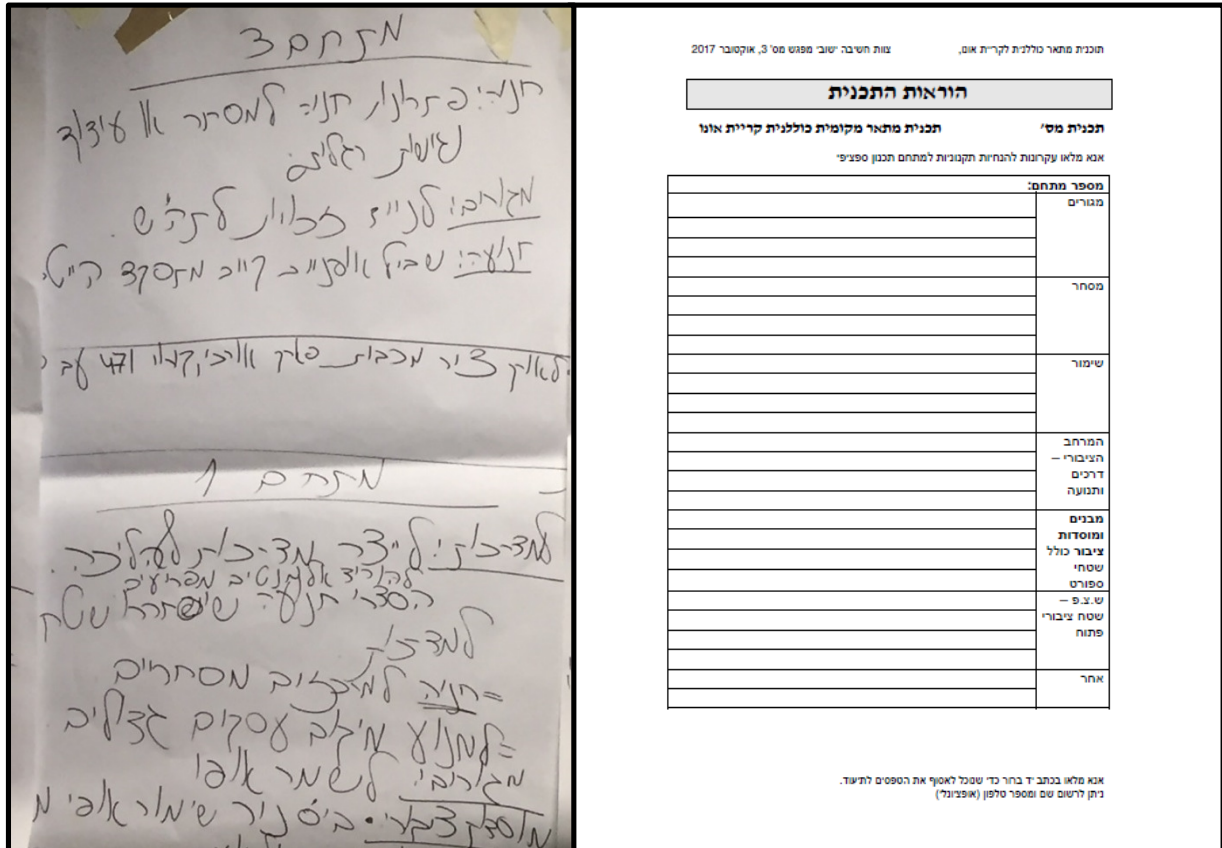 מתחם 3
חניה: פתרונות חניה למסחר או עידוד
נגישות רגלית
מגורים: לנייד זכויות לתה"ש.
תנועה: שביל אופניים קיים מתפקד
לאורך ציר
מתחם 1
למדרכות: לייצר מדרכות להליכה.
להוריד אלמנטים מפריעים
הסדרי תנועה שטח
למדרכות
=חניה למרכזים מסחריים
=למנוע עסקים גדולים
מגורים: לשמר אופי
שימור אופי
תוכנית מתאר כוללנית לקריית אונו, צוות חשיבה ישובי מפגש מס' 3, אוקטובר 2017
הוראות התכנית
תכנית מס' תכנית מתאר מקומית כוללנית קריית אונו
אנא מלאו עקרונות להנחיות תקנוניות למתחם תכנון ספציפי
מספר מתחם:
מגורים
מסחר
שימור
המרחב
הציבורי –
דרכים
ותנועה
מבנים
ומוסדות
ציבור כולל
שטחי
ספורט
ש.צ.פ –
שטח ציבורי
פתוח
אחר
אנא מלאו בכתב יד ברור כדי שנוכל לאסוף את הטפסים לתיעוד.
ניתן לרשום שם ומספר טלפון (אופציונלי)